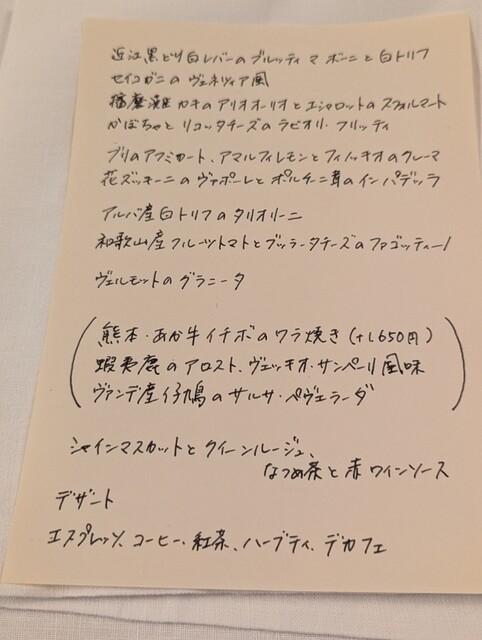 近江黒どり白レバーのブルッティ マ ボーニと白トリフ
セイコガニのヴェネツィア風
播磨灘 カキのアリオオーリオとエシャロットのスフォルマート
かぼちゃとリコッタチーズのラビオリ・フリッティ
ブリのアフミカート、アマルフィレモンとフィノッキオのクレーマ
花ズッキーニのヴァポーレとポルチーニ茸のインパデッラ
アルバ産白トリフのタリオリーニ
和歌山産フルーツトマトとブッラータチーズのファゴッティーノ
ヴェルモットのグラニータ
(熊本・あか牛イチボのワラ焼き (+1,650円)
蝦夷鹿のアロスト、ヴェッキオ・サンペーリ風味
ヴァンデ産仔鳩のサルサ・ペヴェラーダ)
シャインマスカットとクイーンルージュ、
なつめ茶と赤ワインソース
デザート
エスプレッソ、コーヒー、紅茶、ハーブティ、デカフェ